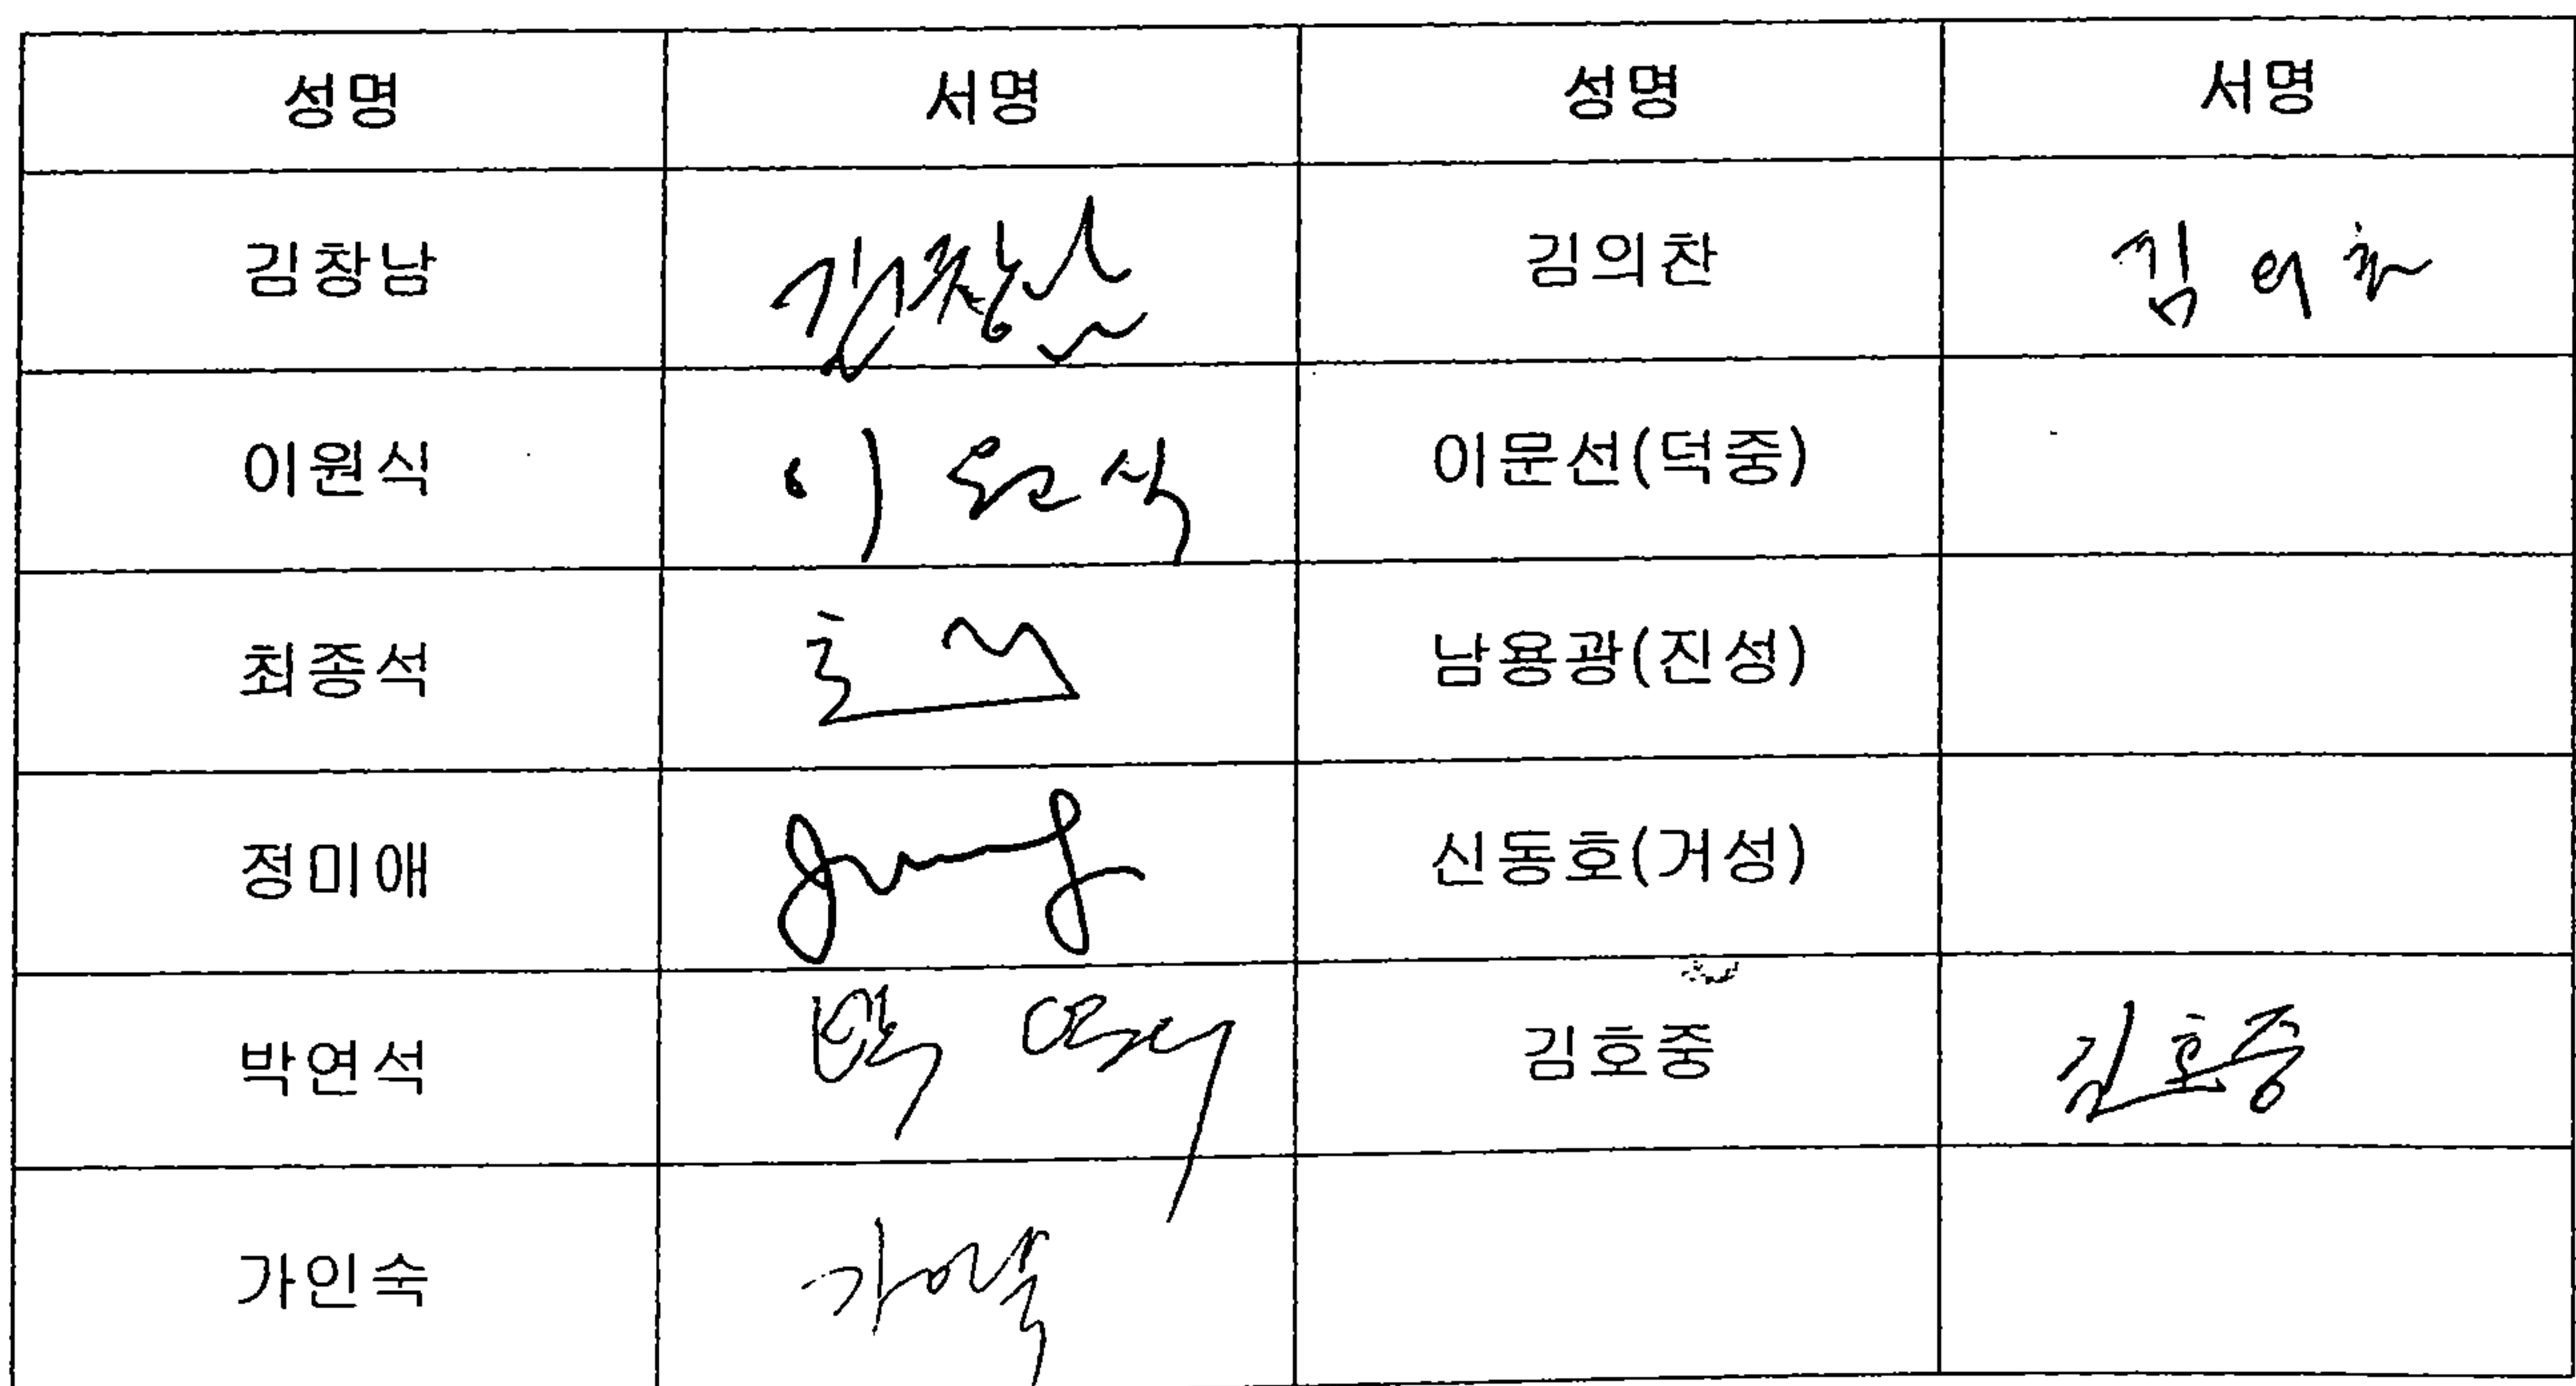 성명 서명 성명 서명
김창남 김창남 김의찬 김의찬
이원식 이원식 이문선(덕중)
최종석 남용광(진성)
정미애 신동호(거성)
박연석 박연석 김호중 김호중
가인숙 가인숙